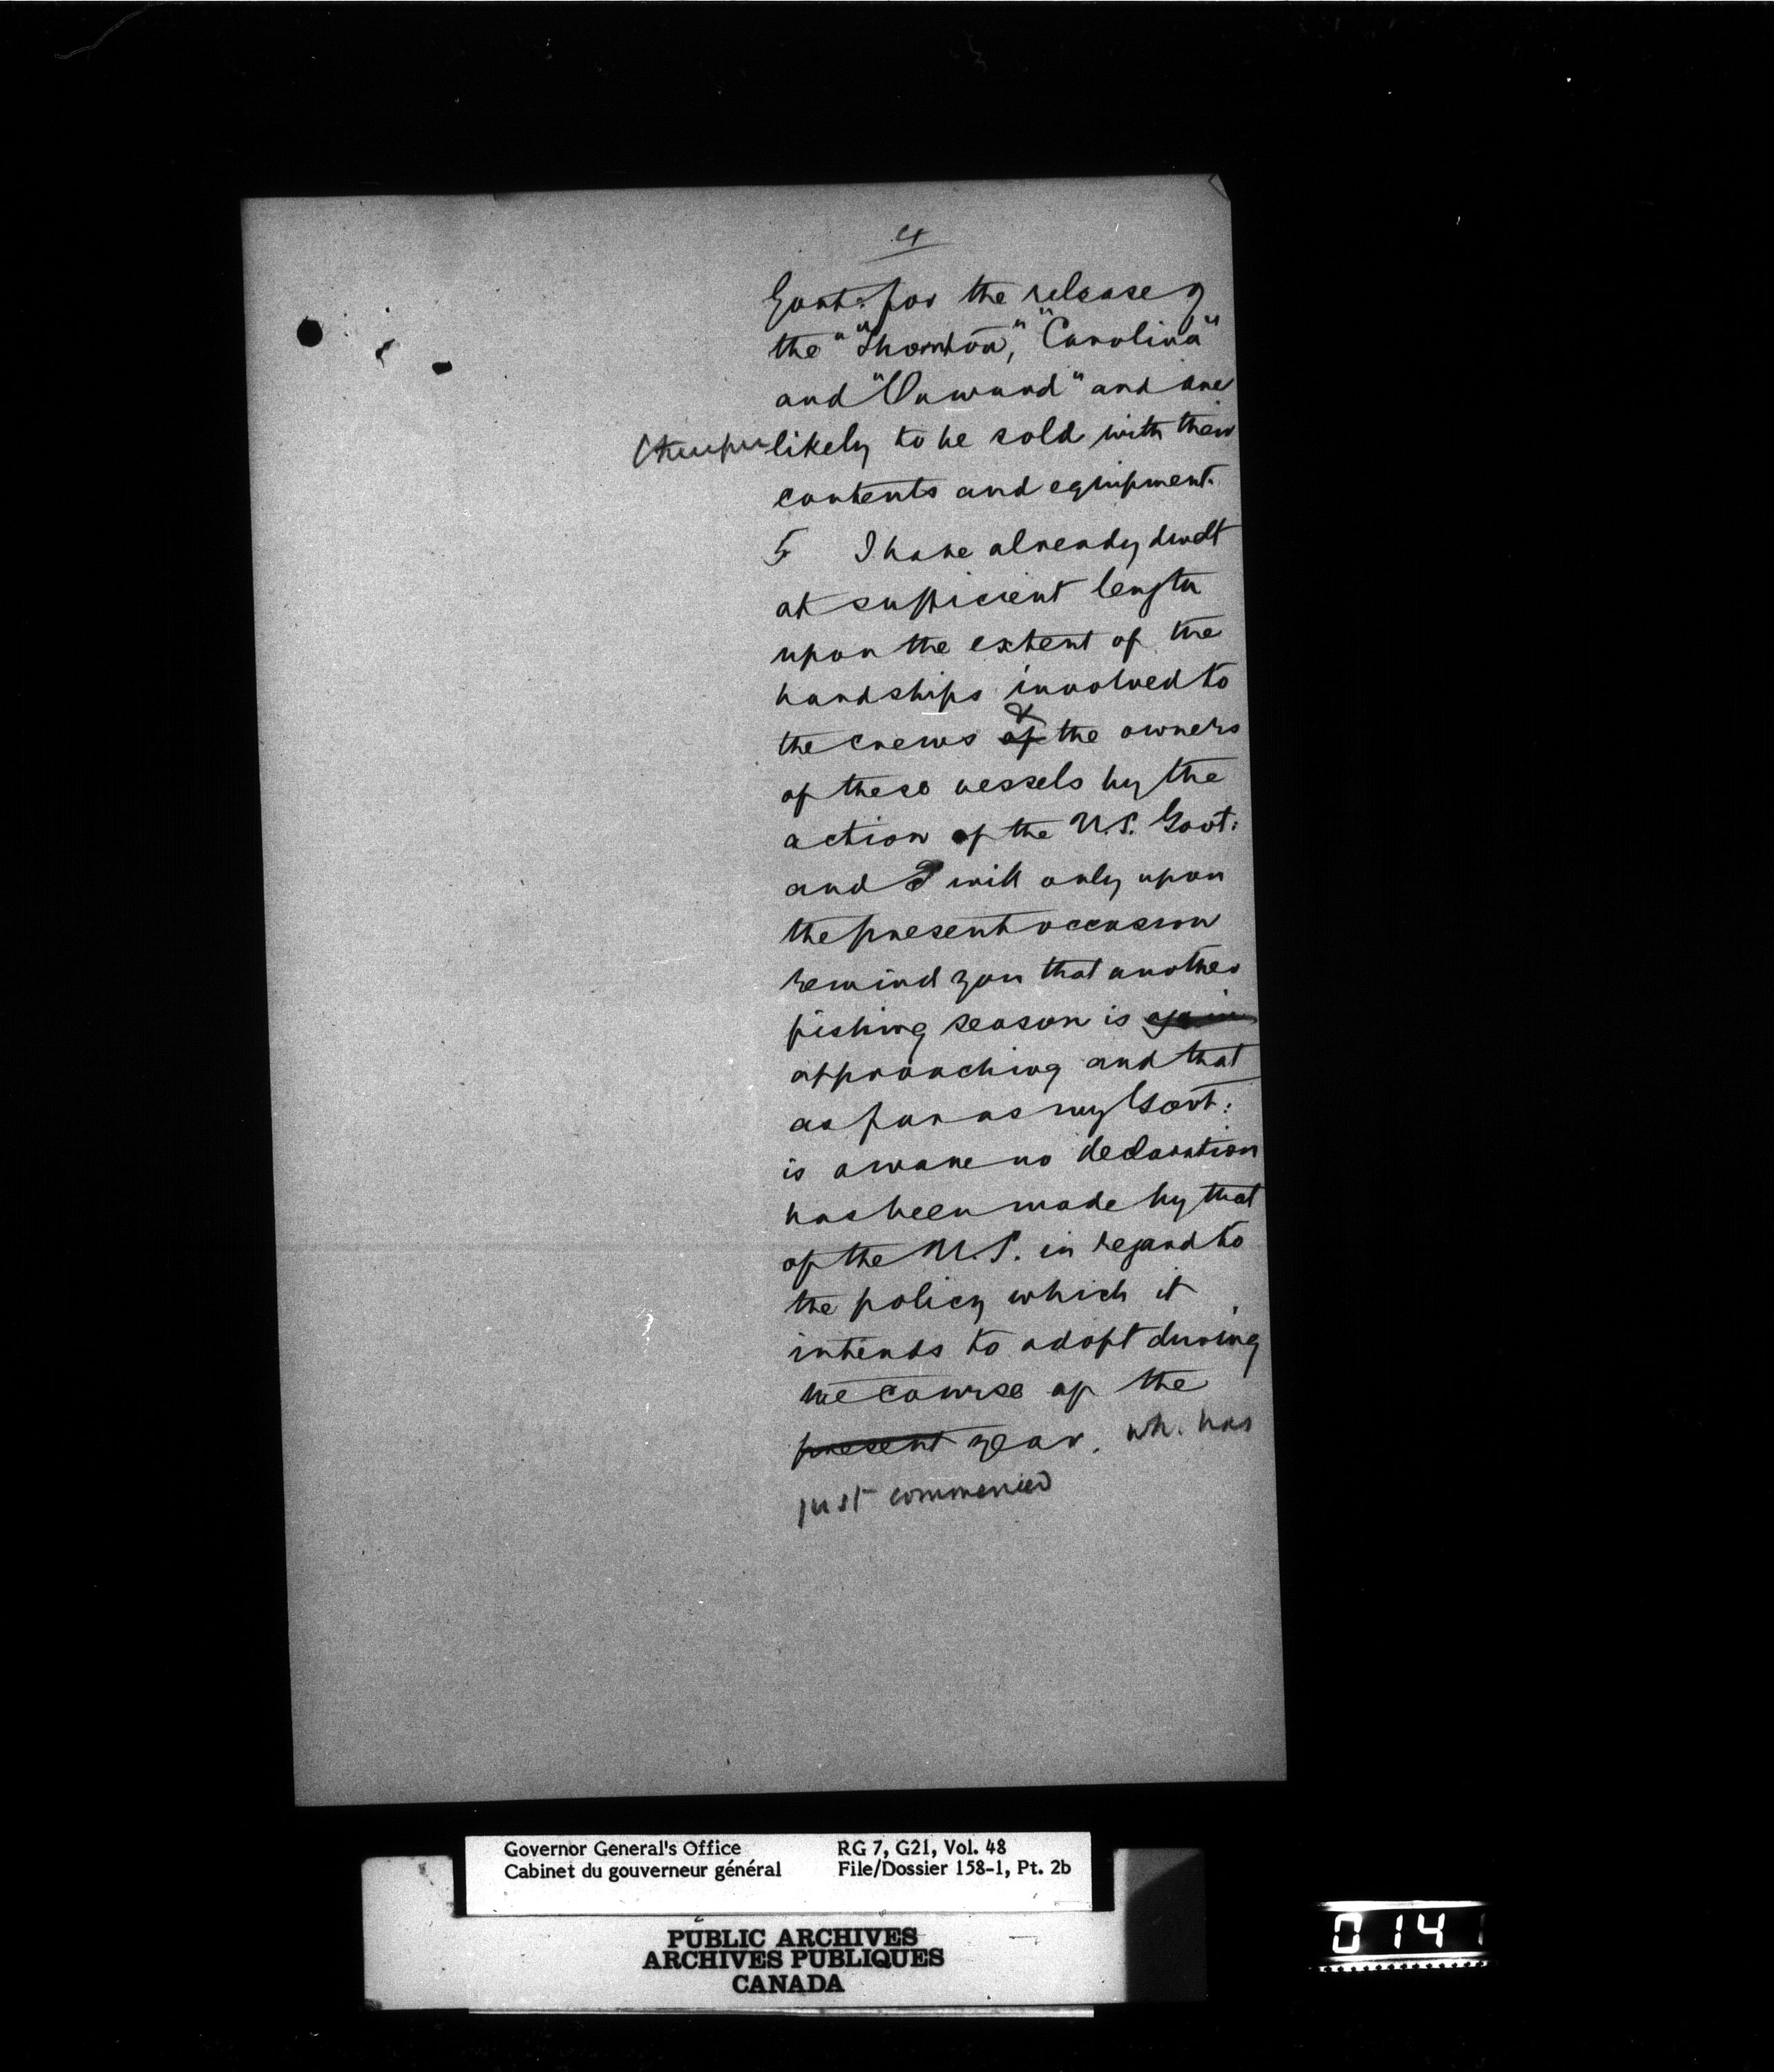 4
Govt: for the release of
the "Thornton," "Carolina"
and "Onward" and are
likely to be sold with their
contents and equipment.
5 I have already dwelt
at sufficient length
upon the extent of the
hardships involved to
the crews of & the owners
of these vessels by the
action of the U.S. Govt:
and I will only upon
the present occasion
remind you that another
fishing season is again
approaching and that
as far as my Govt:
is aware no declaration
has been made by that
of the U.S. in regard to
the policy which it
intends to adopt during
the course of the
present year. wh. has
just commenced
Governor General's Office RG 7, G21, Vol. 48
Cabinet du gouverneur général File/Dossier 158-1, Pt. 2b
PUBLIC ARCHIVES
ARCHIVES PUBLIQUES
CANADA
0141